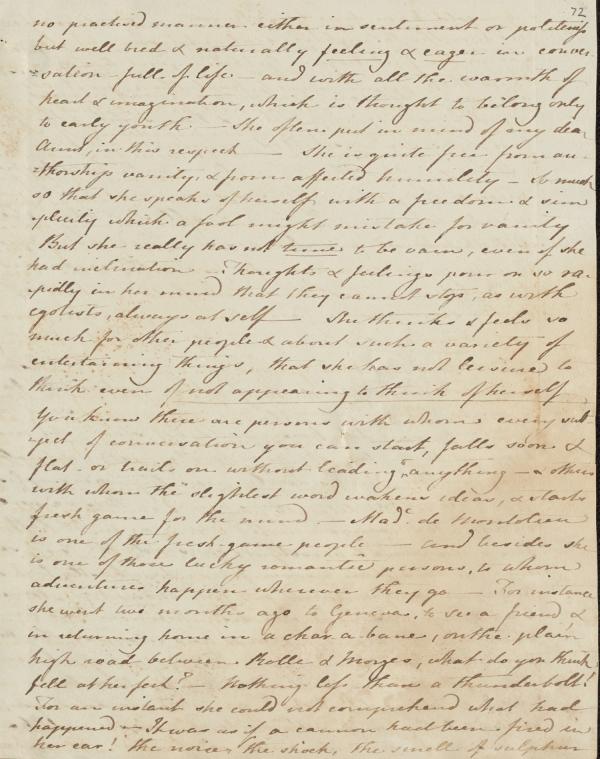 72
no practised manner either in sentiment or politeness
but well bred & naturally feeling & eager in conver
=sation - full of life - and with all the warmth of
heart & imagination, which is thought to belong only
to early youth - She often put in mind of my dear
Aunt, in this respect - She is quite free from au
=thorship vanity & from affected humility - So much
so that she speaks of herself with a freedom & sim
=plicity which a fool might mistake for vanity
But she really has not time to be vain, even if she
had inclination - Thoughts & feelings pour on so ra-
=pidly in her mind that they cannot stop, as with
egotists, always at self - She thinks & feels so
much for other people & about such a variety of
entertaining things, that she has not leisure to
think even of not appearing to think of herself
You know there are persons with whom every sub
=ject of conversation you can start, falls soon &
flat or trails on without leading to anything - & others
with whom the slightest word wakens ideas, & starts
fresh game for the mind - Mad.e de Montolieu
is one of the fresh-game people - and besides she
is one of those lucky romantic persons, to whom
adventures happen wherever they go - For instance
she went two months ago to Geneva, to see a friend &
in returning home in a char a banc, on the plain
high road between Rolle & Morges, what do you think
fell at her feet? - Nothing less than a thunderbolt!
For an instant she could not comprehend what had
happened - It was as if a cannon had been fired in
her ear! the noise, the shock, the smell of sulphur